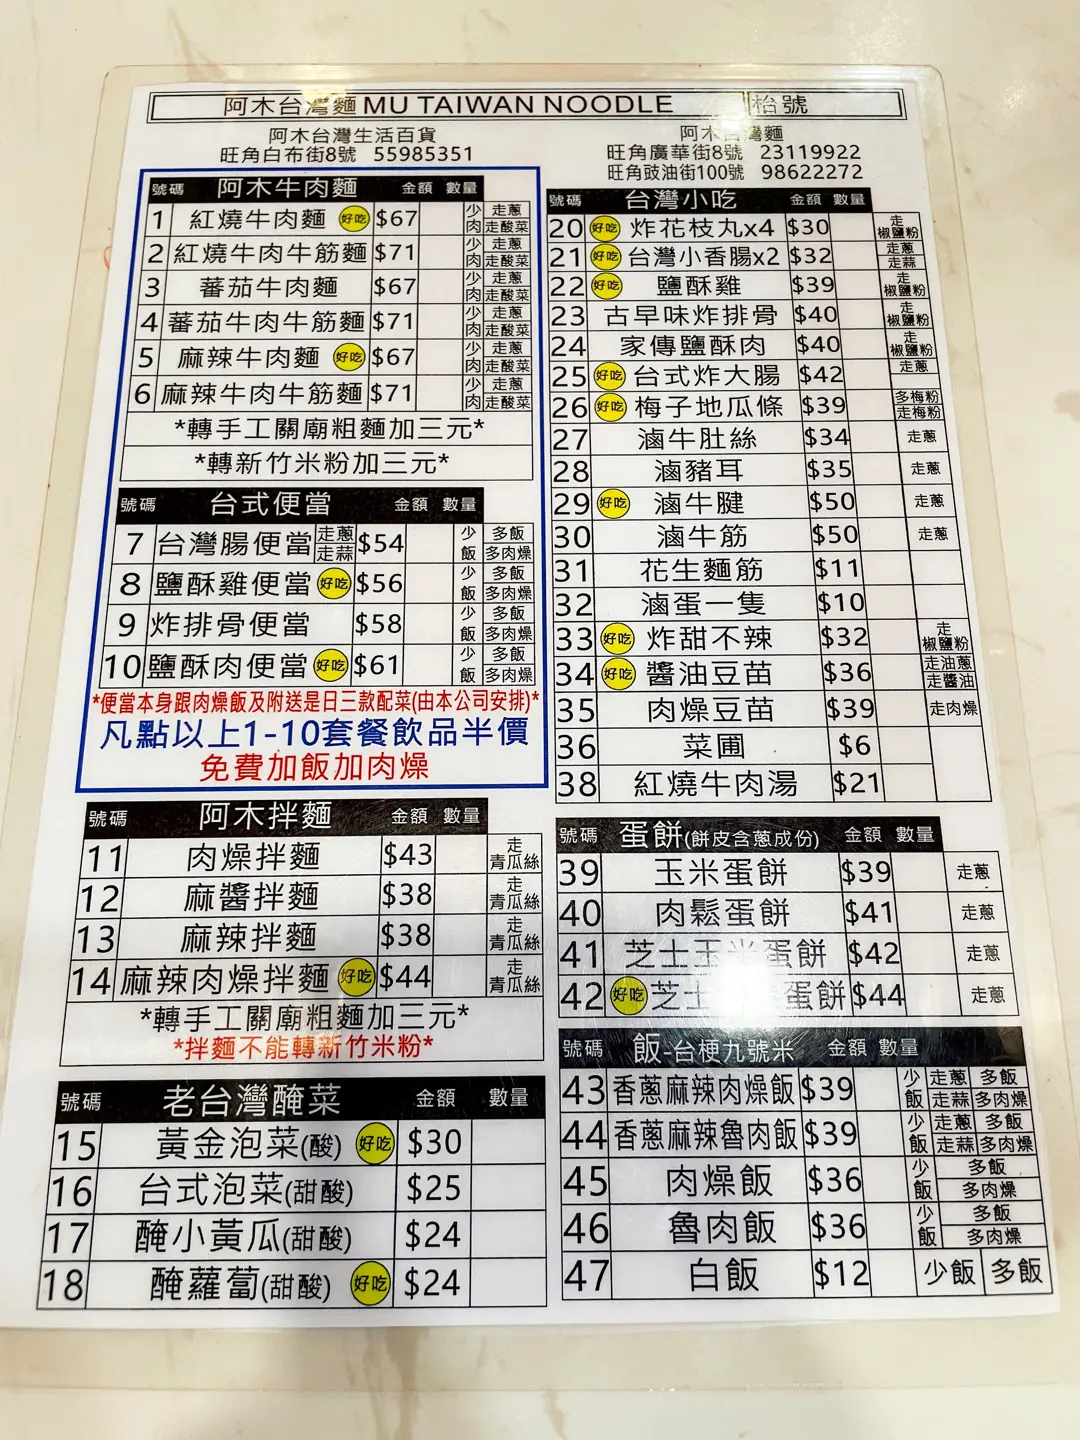 阿木台灣麵 MU TAIWAN NOODLE 枱號
阿木台灣生活百貨
旺角白布街8號 55985351
阿木台灣麵
旺角廣華街8號 23119922
旺角豉油街100號 98622272
號碼 阿木牛肉麵 金額 數量
1 紅燒牛肉麵 好吃 $67 少肉 走蔥 走酸菜
2 紅燒牛肉牛筋麵 $71 少肉 走蔥 走酸菜
3 蕃茄牛肉麵 $67 少肉 走蔥 走酸菜
4 蕃茄牛肉牛筋麵 $71 少肉 走蔥 走酸菜
5 麻辣牛肉麵 好吃 $67 少肉 走蔥 走酸菜
6 麻辣牛肉牛筋麵 $71 少肉 走蔥 走酸菜
*轉手工關廟粗麵加三元*
*轉新竹米粉加三元*
號碼 台式便當 金額 數量
7 台灣腸便當 走蔥 走蒜 $54 少飯 多飯 多肉燥
8 鹽酥雞便當 好吃 $56 少飯 多飯 多肉燥
9 炸排骨便當 $58 少飯 多飯 多肉燥
10 鹽酥肉便當 好吃 $61 少飯 多飯 多肉燥
*便當本身跟肉燥飯及附送是日三款配菜(由本公司安排)*
凡點以上1-10套餐飲品半價
免費加飯加肉燥
號碼 阿木拌麵 金額 數量
11 肉燥拌麵 $43 走青瓜絲
12 麻醬拌麵 $38 走青瓜絲
13 麻辣拌麵 $38 走青瓜絲
14 麻辣肉燥拌麵 好吃 $44 走青瓜絲
*轉手工關廟粗麵加三元*
*拌麵不能轉新竹米粉*
號碼 老台灣醃菜 金額 數量
15 黃金泡菜(酸) 好吃 $30
16 台式泡菜(甜酸) $25
17 醃小黃瓜(甜酸) $24
18 醃蘿蔔(甜酸) 好吃 $24
號碼 台灣小吃 金額 數量
20 好吃 炸花枝丸x4 $30 走椒鹽粉
21 好吃 台灣小香腸x2 $32 走蔥 走蒜
22 好吃 鹽酥雞 $39 走椒鹽粉
23 古早味炸排骨 $40 走椒鹽粉
24 家傳鹽酥肉 $40 走椒鹽粉
25 好吃 台式炸大腸 $42 走蔥
26 好吃 梅子地瓜條 $39 多梅粉 走梅粉
27 滷牛肚絲 $34 走蔥
28 滷豬耳 $35 走蔥
29 好吃 滷牛腱 $50 走蔥
30 滷牛筋 $50 走蔥
31 花生麵筋 $11
32 滷蛋一隻 $10
33 好吃 炸甜不辣 $32 走椒鹽粉
34 好吃 醬油豆苗 $36 走油蔥 走醬油
35 肉燥豆苗 $39 走肉燥
36 菜圃 $6
38 紅燒牛肉湯 $21
號碼 蛋餅(餅皮含蔥成份) 金額 數量
39 玉米蛋餅 $39 走蔥
40 肉鬆蛋餅 $41 走蔥
41 芝士玉米蛋餅 $42 走蔥
42 好吃 芝士 蛋餅 $44 走蔥
號碼 飯-台梗九號米 金額 數量
43 香蔥麻辣肉燥飯 $39 少飯 走蔥 多飯 走蒜 多肉燥
44 香蔥麻辣魯肉飯 $39 少飯 走蔥 多飯 走蒜 多肉燥
45 肉燥飯 $36 少飯 多飯 多肉燥
46 魯肉飯 $36 少飯 多飯 多肉燥
47 白飯 $12 少飯 多飯